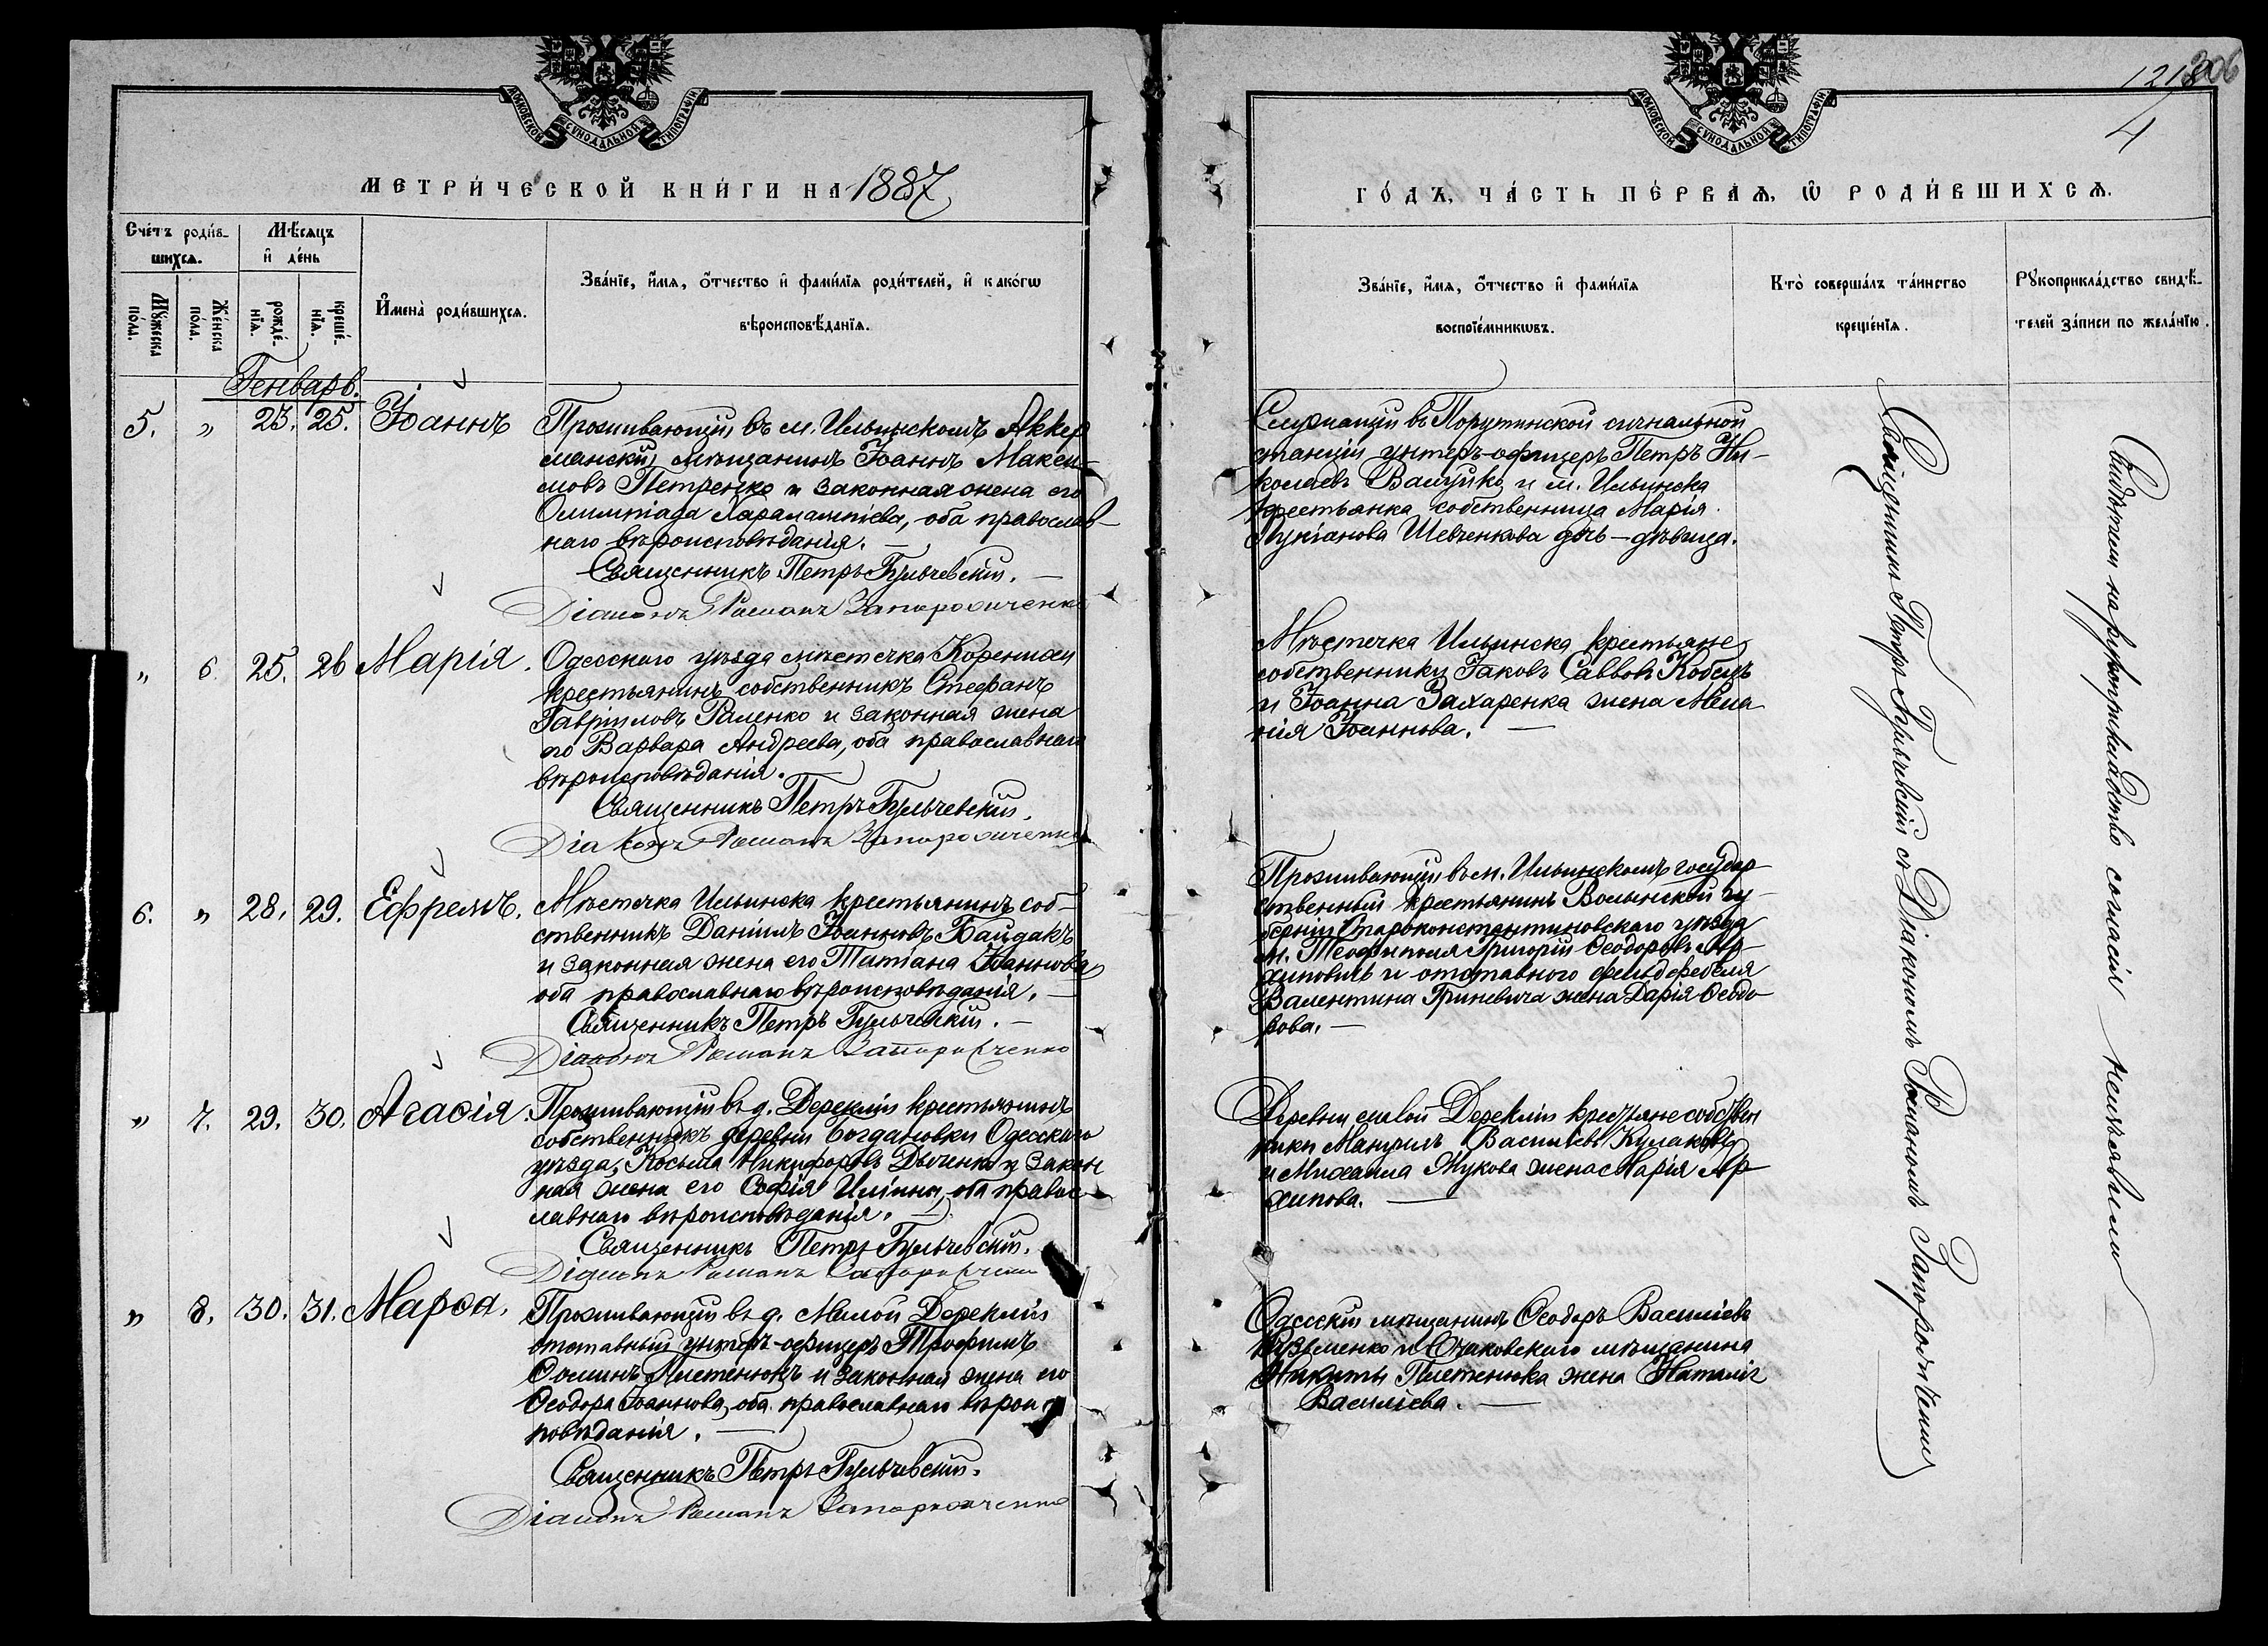 МОСКОВСКОЙ СУНОДАЛЬНОЙ ТИПОГРАФІИ
МЕТРИ́ЧЕСКОЙ КНИ́ГИ НА 1887
Сче́тъ роди́в-
шихсѧ.
Мѣ́сѧцъ
и҆ де́нь
Мꙋ́жеска
по́ла.
Же́нска
по́ла.
рожде́-
нїѧ.
креще́-
нїѧ.
И҆мена̀ роди́вшихсѧ.
Зва́нїе, и҆́мѧ, ѻ҆́тчество и҆ фами́лїѧ роди́телей, и҆ како́гѡ
вѣроисповѣ́данїѧ.
Генварь.
5. „ 23. 25. Іоаннъ
Проживающій въ м. Ильинскомъ Аккер
манскій мѣщанинъ Іоаннъ Макси-
мовъ Петренко и законная жена его
Олимпіада Харалампіева, оба православ-
наго вѣроисповѣданія. —
Священникъ Петръ Гульчевскій. —
Діаконъ Романъ Запорожченко
„ 6. 25. 26 Марія.
Одесскаго уѣзда мѣстечка Коренихи
крестьянинъ собственникъ Стефанъ
Гавріиловъ Раленко и законная жена
его Варвара Андреева, оба православнаго
вѣроисповѣданія.
Священникъ Петръ Гульчевскій.
Діаконъ Романъ Запорожченко
6. „ 28. 29. Ефремъ.
Мѣстечка Ильинска крестьянинъ соб-
ственникъ Даніилъ Іоанновъ Байдакъ
и законная жена его Татіана Іоаннова,
оба православнаго вѣроисповѣданія. —
Священникъ Петръ Гульчевскій. —
Діаконъ Романъ Запорожченко
„ 7. 29. 30. Агаѳія.
Проживающій въ д. Дереклїи крестьянинъ
собственникъ деревни Богдановки Одесскаго
уѣзда, Косьма Никифоровъ Дьяченко и закон
ная жена его Софія Иліина, оба правос-
лавнаго вѣроисповѣданія. —
Священникъ Петръ Гульчевскій.
Діаконъ Романъ Запорожченко
„ 8. 30. 31. Марѳа.
Проживающій въ д. Малой Дереклїи
отставный унтеръ-офицеръ Трофимъ
Ѳоминъ Плетенюкъ и законная жена его
Ѳеодора Іоаннова, оба православнаго вѣроис
повѣданія. —
Священникъ Петръ Гульчевскій.
Діаконъ Романъ Запорожченко
1218
306
4
МОСКОВСКОЙ СУНОДАЛЬНОЙ ТИПОГРАФІИ
ГО́ДЪ, ЧА́СТЬ ПЕ́РВАѦ, Ѡ҆ РОДИ́ВШИХСѦ.
Зва́нїе, и҆́мѧ, ѻ҆́тчество и҆ фами́лїѧ
воспрїе́мникѡвъ.
Кто̀ соверша́лъ та́инство
креще́нїѧ.
Рꙋкоприкла́дство свидѣ́-
телей за́писи по жела́нїю.
Служащій въ Порутинской сигнальной
станціи унтеръ-офицеръ Петръ Ни-
колаевъ Вашушко и м. Ильинска
крестьянка собственница Марія
Лукіанова Шевченкова дочь — дѣвица.
Мѣстечка Ильинска крестьяне
собственники Іаковъ Саввовъ Кобецъ
и Іоанна Захаренка жена Мела
нія Іоаннова. —
Проживающій въ м. Ильинскомъ государ-
ственный крестьянинъ Волынской гу-
берніи Староконстантиновскаго уѣзда
м. Теофиполя Григорій Ѳеодоровъ Ар-
хиповичъ и отставного фельдфебеля
Валентина Гриневича жена Дарія Ѳеодо-
рова. —
Деревни Малой Дереклїи крестьяне собствен
ники Мануилъ Василіевъ Кулаковъ
и Михаила Жукова жена Марія Ар-
хипова. —
Одесскій мѣщанинъ Ѳеодоръ Василіевъ
Кузьменко и Очаковскаго мѣщанина
Никиты Плетенюка жена Наталія
Василіева. —
Священникъ Петръ Гульчевскій съ Діакономъ Романомъ Запорожченко
Свидѣтели на рукоприкладство согласія не изъявили —